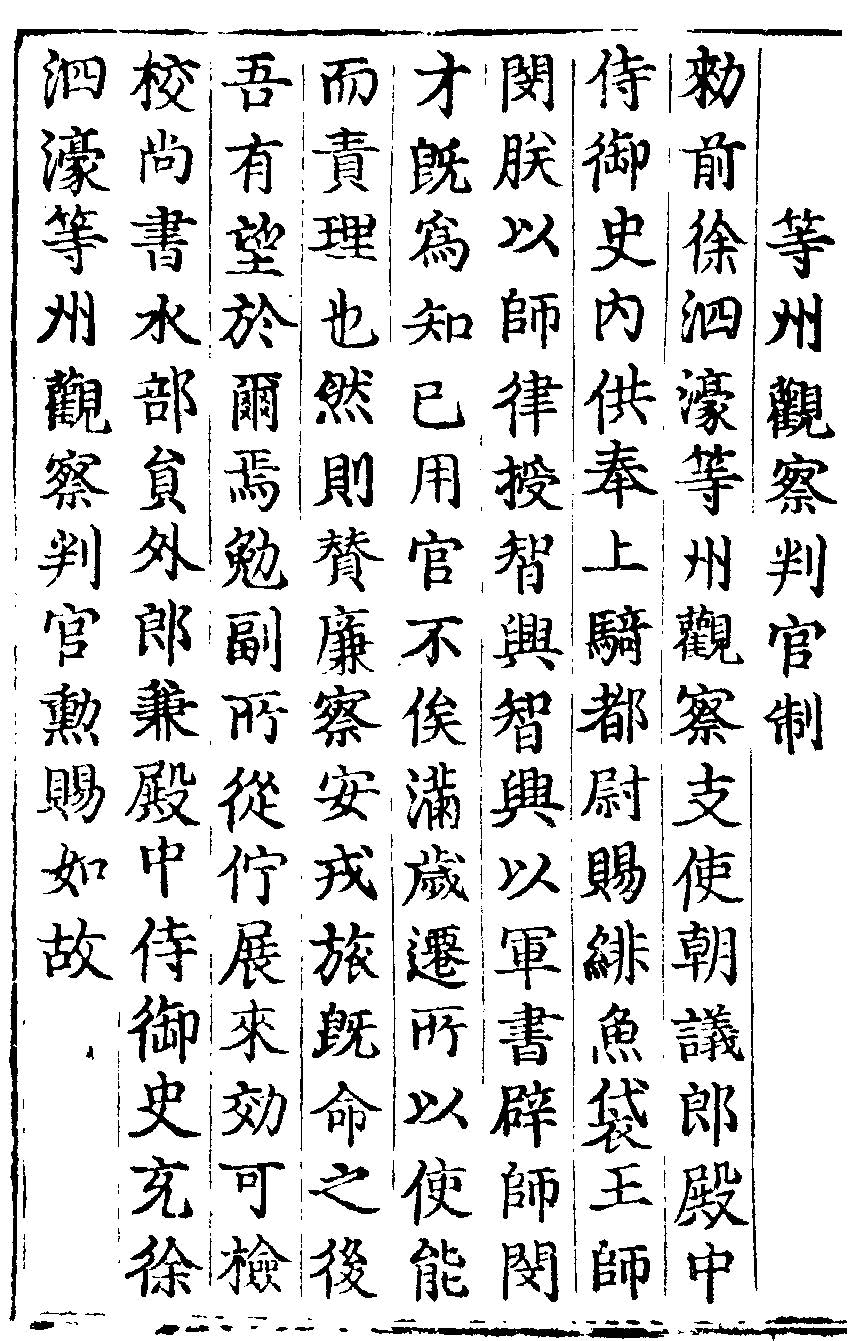 等州觀察判官制
勑前徐泗濠等州觀察支使朝議郎殿中
侍御史內供奉上騎都尉賜緋魚袋王師
閔朕以師律授智興智興以軍書辟師閔
才旣爲知已用官不俟滿歲遷所以使能
而責理也然則賛廉察安戎旅旣命之後
吾有望於爾焉勉副所從佇展來効可檢
校尚書水部貟外郎兼殿中侍御史充徐
泗濠等州觀察判官勲賜如故